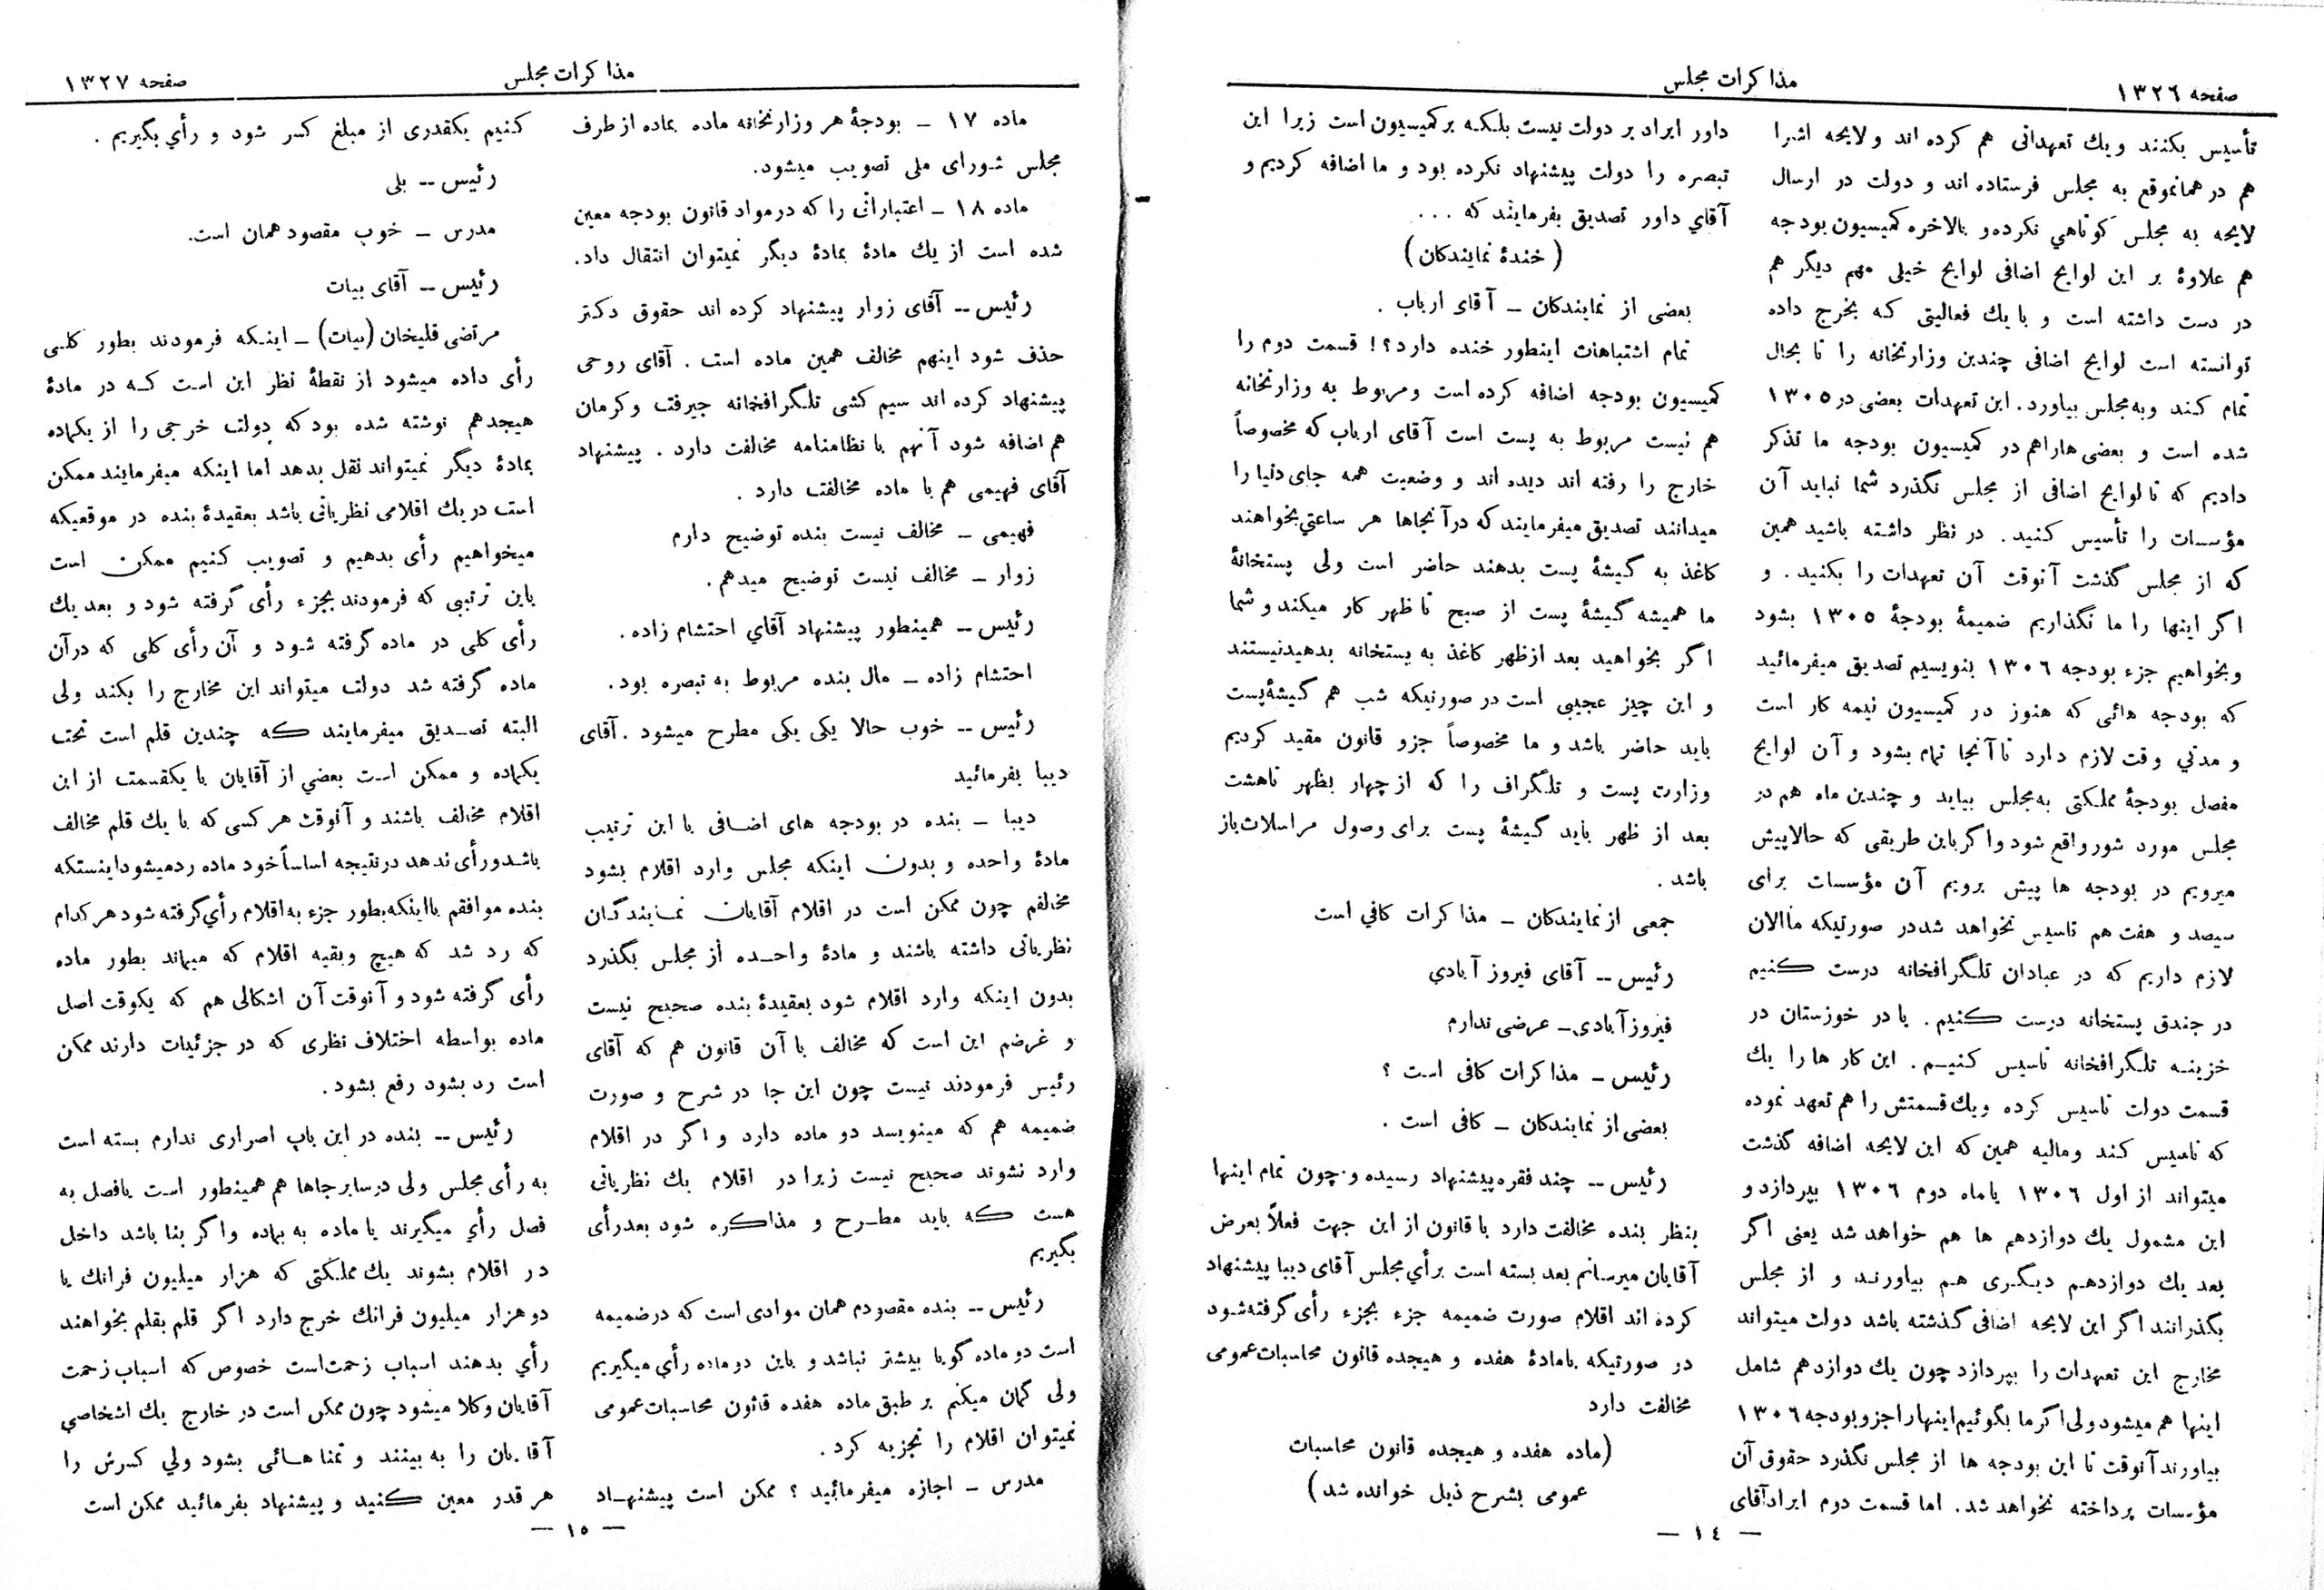 صفحه ۱۳۲۶
مذاكرات مجلس
تأسیس بکنند و یك تعهداتی هم کرده اند و لایحه اشرا
هم در همانموقع به مجلس فرستاده اند و دولت در ارسال
لایحه به مجلس کوتاهي نکرده و بالاخره کمیسیون بودجه
هم علاوۀ بر این لوایح اضافی لوایح خیلی مهم دیگر هم
در دست داشته است و با یك فعالیتی که بخرج داده
توانسته است لوایح اضافی چندین وزارتخانه را تا بحال
تمام کند و به مجلس بیاورد. این تعهدات بعضی در ۱۳۰۵
شده است و بعضی هارا هم در کمیسیون بودجه ما تذکر
دادیم که تا لوایح اضافی از مجلس نگذرد شما نباید آن
مؤسسات را تأسیس کنید. در نظر داشته باشید همین
که از مجلس گذشت آنوقت آن تعهدات را بکنید. و
اگر اینها را ما نگذاریم ضمیمۀ بودجۀ ۱۳۰۵ بشود
و بخواهیم جزء بودجه ۱۳۰۶ بنویسیم تصدیق میفرمائید
که بودجه هائی که هنوز در کمیسیون نیمه کار است
و مدتي وقت لازم دارد تا آنجا تمام بشود و آن لوایح
مفصل بودجۀ مملکتی به مجلس بیاید و چندین ماه هم در
مجلس مورد شور واقع شود و اگر باین طریقی که حالا پیش
میرویم در بودجه ها پیش برویم آن مؤسسات برای
سیصد و هفت هم تاسیس نخواهد شد در صورتیکه ما الان
لازم داریم که در عبادان تلگرافخانه درست کنیم
در جندق پستخانه درست کنیم. یا در خوزستان در
خزینه تلگرافخانه تاسیس کنیم. این کار ها را یك
قسمت دولت تاسیس کرده و یك قسمتش را هم تعهد نموده
که تاسیس کند و مالیه همین که این لایحه اضافه گذشت
میتواند از اول ۱۳۰۶ یا ماه دوم ۱۳۰۶ بپردازد و
این مشمول یك دوازدهم ها هم خواهد شد یعنی اگر
بعد یك دوازدهم دیگری هم بیاورند و از مجلس
بگذرانند اگر این لایحه اضافی گذشته باشد دولت میتواند
مخارج این تعهدات را بپردازد چون یك دوازدهم شامل
اینها هم میشود ولی اگر ما بگوئیم اینهارا جزو بودجه ۱۳۰۶
بیاورند آنوقت تا این بودجه ها از مجلس نگذرد حقوق آن
مؤسسات پرداخته نخواهد شد. اما قسمت دوم ایراد آقای
داور ایراد بر دولت نیست بلکه بر کمیسیون است زیرا این
تبصره را دولت پیشنهاد نکرده بود و ما اضافه کردیم و
آقاي داور تصدیق بفرمایند که ...
(خندۀ نمایندگان)
بعضی از نمایندگان ــ آقای ارباب .
تمام اشتباهات اینطور خنده دارد؟! قسمت دوم را
کمیسیون بودجه اضافه کرده است و مربوط به وزارتخانه
هم نیست مربوط به پست است آقای ارباب که مخصوصاً
خارج را رفته اند دیده اند و وضعیت همه جای دنیا را
میدانند تصدیق میفرمایند که در آنجاها هر ساعتي بخواهند
کاغذ به گیشۀ پست بدهند حاضر است ولی پستخانۀ
ما همیشه گیشۀ پست از صبح تا ظهر کار میکند و شما
اگر بخواهید بعد از ظهر کاغذ به پستخانه بدهید نیستند
و این چیز عجیبی است در صورتیکه شب هم گیشۀ پست
باید حاضر باشد و ما مخصوصاً جزو قانون مقید کردیم
وزارت پست و تلگراف را که از چهار بظهر تا هشت
بعد از ظهر باید گیشۀ پست برای وصول مراسلات باز
باشد .
جمعی از نمایندگان ــ مذاکرات کافي است
رئیس ــ آقای فیروز آبادي
فیروز آبادی ــ عرضی ندارم
رئیس ــ مذاکرات کافی است ؟
بعضی از نمایندگان ــ کافی است .
رئیس ــ چند فقره پیشنهاد رسیده و چون تمام اینها
بنظر بنده مخالفت دارد با قانون از این جهت فعلاً بعرض
آقایان میرسانم بعد بسته است برأي مجلس آقای دیبا پیشنهاد
کرده اند اقلام صورت ضمیمه جزء بجزء رأی گرفته شود
در صورتیکه با مادۀ هفده و هیجده قانون محاسبات عمومی
مخالفت دارد
(ماده هفده و هیجده قانون محاسبات
عمومی بشرح ذیل خوانده شد)
— ١٤ —
مذاكرات مجلس
صفحه ۱۳۲۷
ماده ۱۷ ــ بودجۀ هر وزارتخانه ماده بماده از طرف
مجلس شورای ملی تصویب میشود.
ماده ۱۸ ــ اعتباراتی را که در مواد قانون بودجه معین
شده است از یك مادۀ بمادۀ دیگر نمیتوان انتقال داد.
رئیس ــ آقای زوار پیشنهاد کرده اند حقوق دکتر
حذف شود اینهم مخالف همین ماده است . آقای روحی
پیشنهاد کرده اند سیم کشی تلگرافخانه جیرفت و کرمان
هم اضافه شود آنهم با نظامنامه مخالفت دارد . پیشنهاد
آقای فهیمی هم با ماده مخالفت دارد .
فهیمی ــ مخالف نیست بنده توضیح دارم
زوار ــ مخالف نیست توضیح میدهم .
رئیس ــ همینطور پیشنهاد آقاي احتشام زاده .
احتشام زاده ــ مال بنده مربوط به تبصره بود.
رئیس ــ خوب حالا یکی یکی مطرح میشود . آقای
دیبا بفرمائید
دیبا ــ بنده در بودجه های اضافی با این ترتیب
مادۀ واحده و بدون اینکه مجلس وارد اقلام بشود
مخالفم چون ممکن است در اقلام آقایان نمایندگان
نظریاتی داشته باشند و مادۀ واحده از مجلس بگذرد
بدون اینکه وارد اقلام شود بعقیدۀ بنده صحیح نیست
و غرضم این است که مخالف با آن قانون هم که آقای
رئیس فرمودند نیست چون این جا در شرح و صورت
ضمیمه هم که مینویسد دو ماده دارد و اگر در اقلام
وارد نشوند صحیح نیست زیرا در اقلام یك نظریاتی
هست که باید مطرح و مذاکره شود بعد رأی
بگیریم
رئیس ــ بنده مقصودم همان موادی است که در ضمیمه
است دو ماده گویا بیشتر نباشد و باین دو ماده رأی میگیریم
ولی گمان میکنم بر طبق ماده هفده قانون محاسبات عمومی
نمیتوان اقلام را تجزیه کرد .
مدرس ــ اجازه میفرمائید ؟ ممکن است پیشنهاد
کنیم یکقدری از مبلغ کسر شود و رأي بگیریم .
رئیس ــ بلی
مدرس ــ خوب مقصود همان است.
رئیس ــ آقای بیات
مرتضی قلیخان (بیات) ــ اینکه فرمودند بطور کلی
رأی داده میشود از نقطۀ نظر این است که در مادۀ
هیجدهم نوشته شده بود که دولت خرجی را از یکماده
بمادۀ دیگر نمیتواند نقل بدهد اما اینکه میفرمایند ممکن
است در یك اقلامی نظریاتی باشد بعقیدۀ بنده در موقعیکه
میخواهیم رأی بدهیم و تصویب کنیم ممکن است
باین ترتیبی که فرمودند بجزء رأی گرفته شود و بعد یك
رأی کلی در ماده گرفته شود و آن رأی کلی که در آن
ماده گرفته شد دولت میتواند این مخارج را بکند ولی
البته تصدیق میفرمایند که چندین قلم است تحت
یکماده و ممکن است بعضي از آقایان با یکقسمت از این
اقلام مخالف باشند و آنوقت هر کسی که با یك قلم مخالف
باشد و رأی ندهد در نتیجه اساساً خود ماده رد میشود اینستکه
بنده موافقم با اینکه بطور جزء به اقلام رأي گرفته شود هر کدام
که رد شد که هیچ و بقیه اقلام که میماند بطور ماده
رأی گرفته شود و آنوقت آن اشکالی هم که یکوقت اصل
ماده بواسطه اختلاف نظری که در جزئیات دارند ممکن
است رد بشود رفع بشود .
رئیس ــ بنده در این باب اصراری ندارم بسته است
به رأی مجلس ولی در سایر جاها هم همینطور است یا فصل به
فصل رأي میگیرند یا ماده به بماده و اگر بنا باشد داخل
در اقلام بشوند یك مملکتی که هزار میلیون فرانك یا
دو هزار میلیون فرانك خرج دارد اگر قلم بقلم بخواهند
رأي بدهند اسباب زحمت است خصوص که اسباب زحمت
آقایان وکلا میشود چون ممکن است در خارج یك اشخاصي
آقایان را به بینند و تمنا هائی بشود ولي کسرش را
هر قدر معین کنید و پیشنهاد بفرمائید ممکن است
— ١٥ —